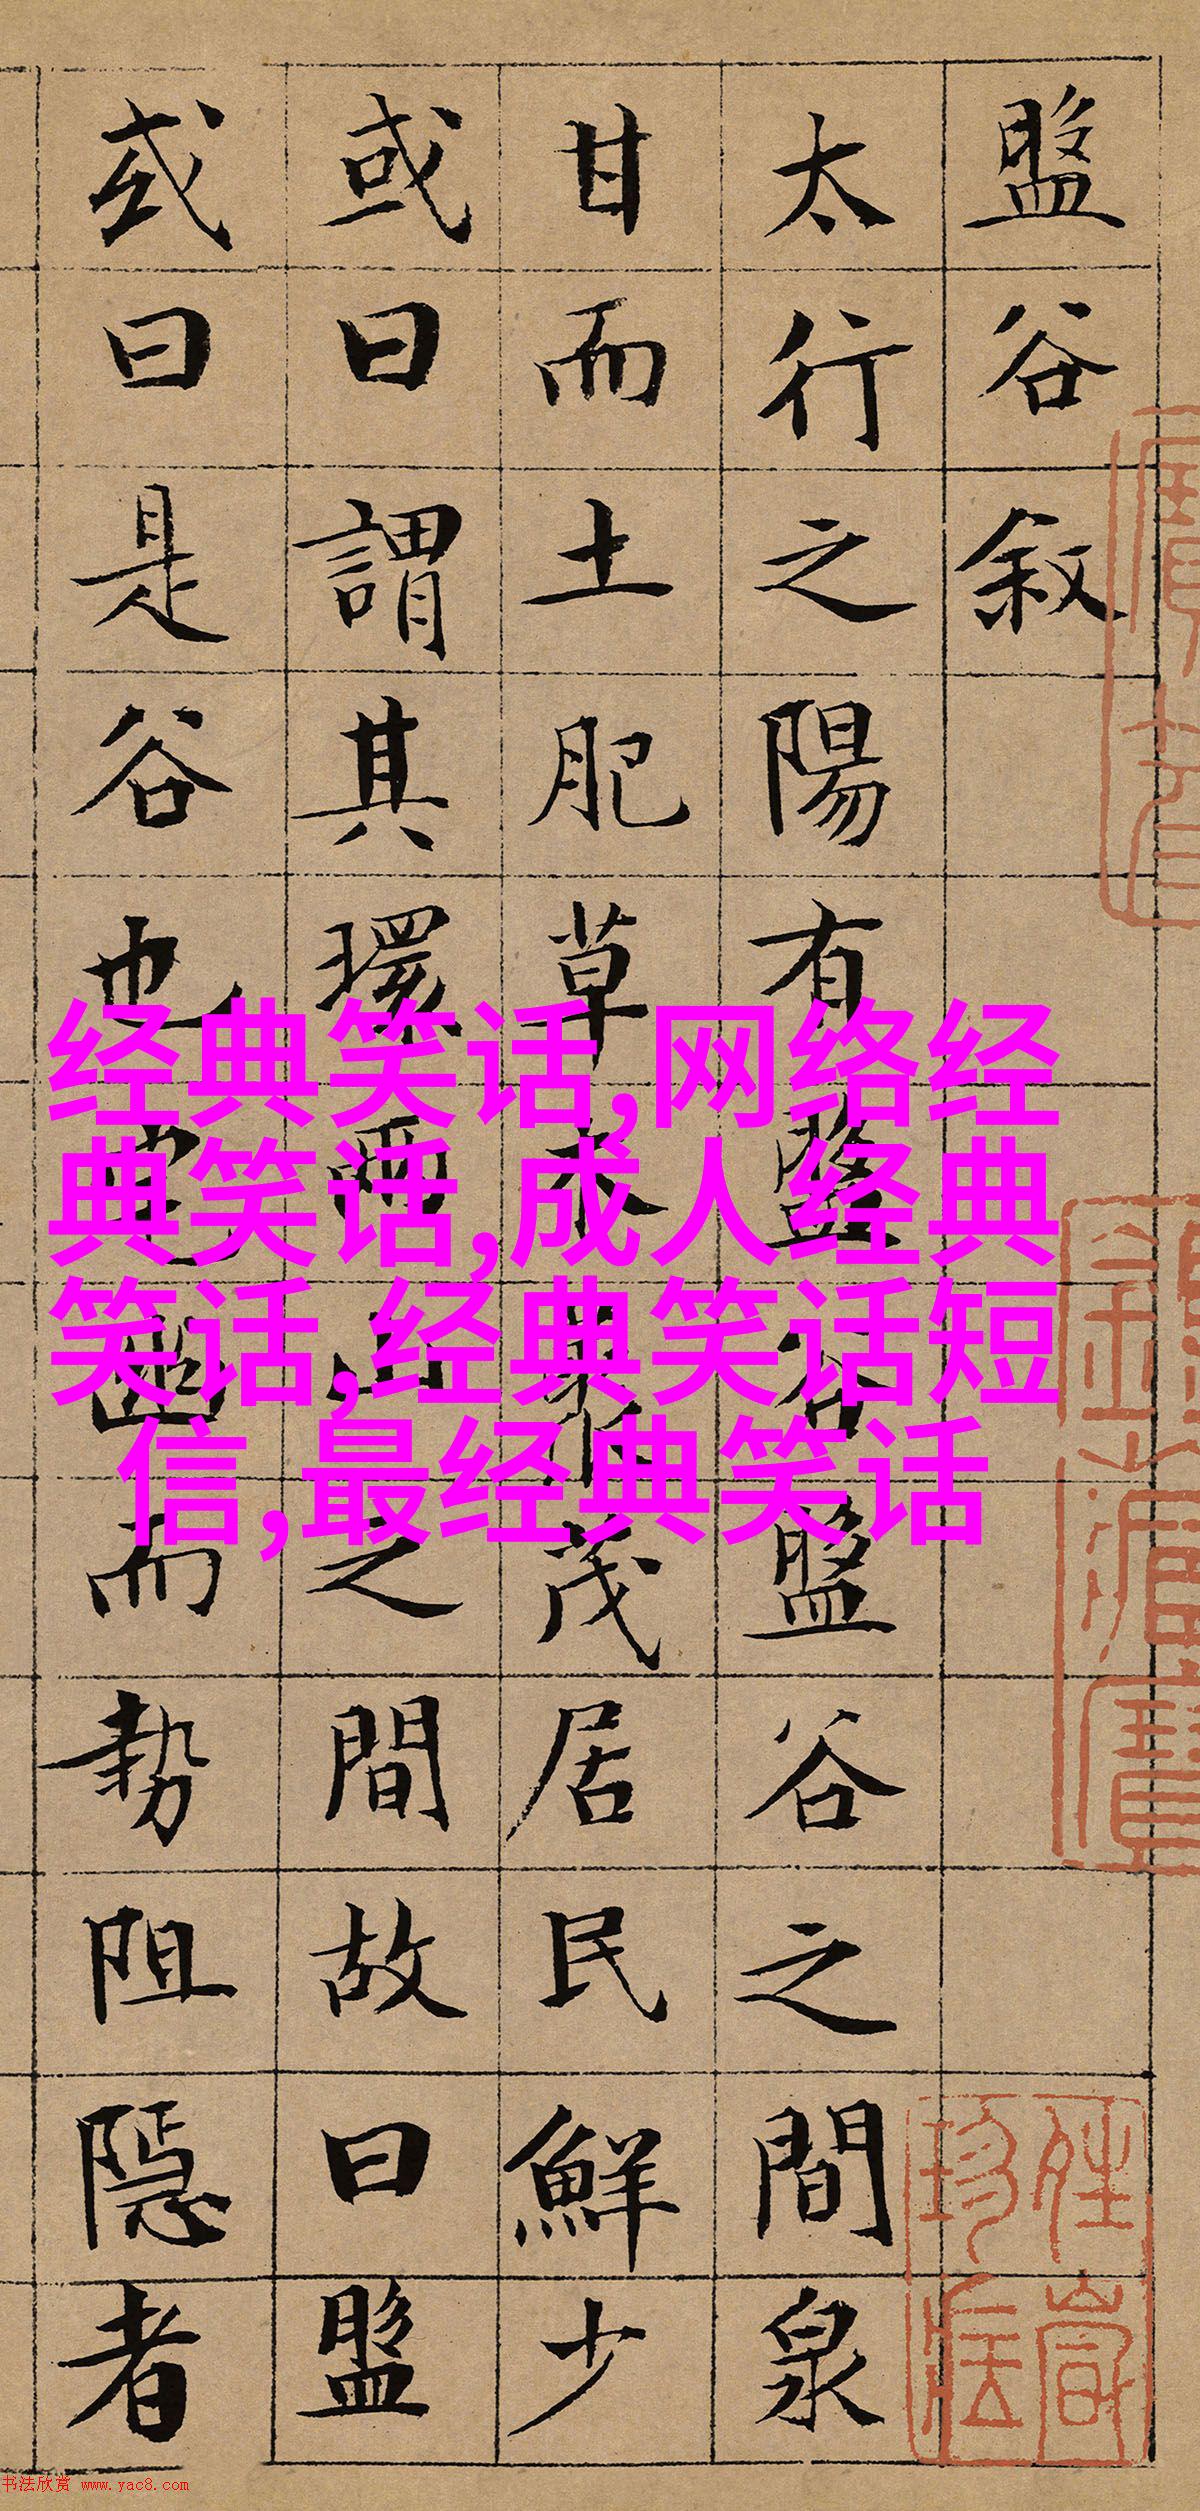 盤谷叙
太行之陽有盤谷盤谷之間泉
甘而土肥草木叢茂居民鮮少
或曰謂其環兩山之間故曰盤
或曰是谷也宅幽而勢阻隱者
经典笑话,网络经
典笑话,成人经典
笑话,经典笑话短
信,最经典笑话
书法欣赏 www.yac8.com